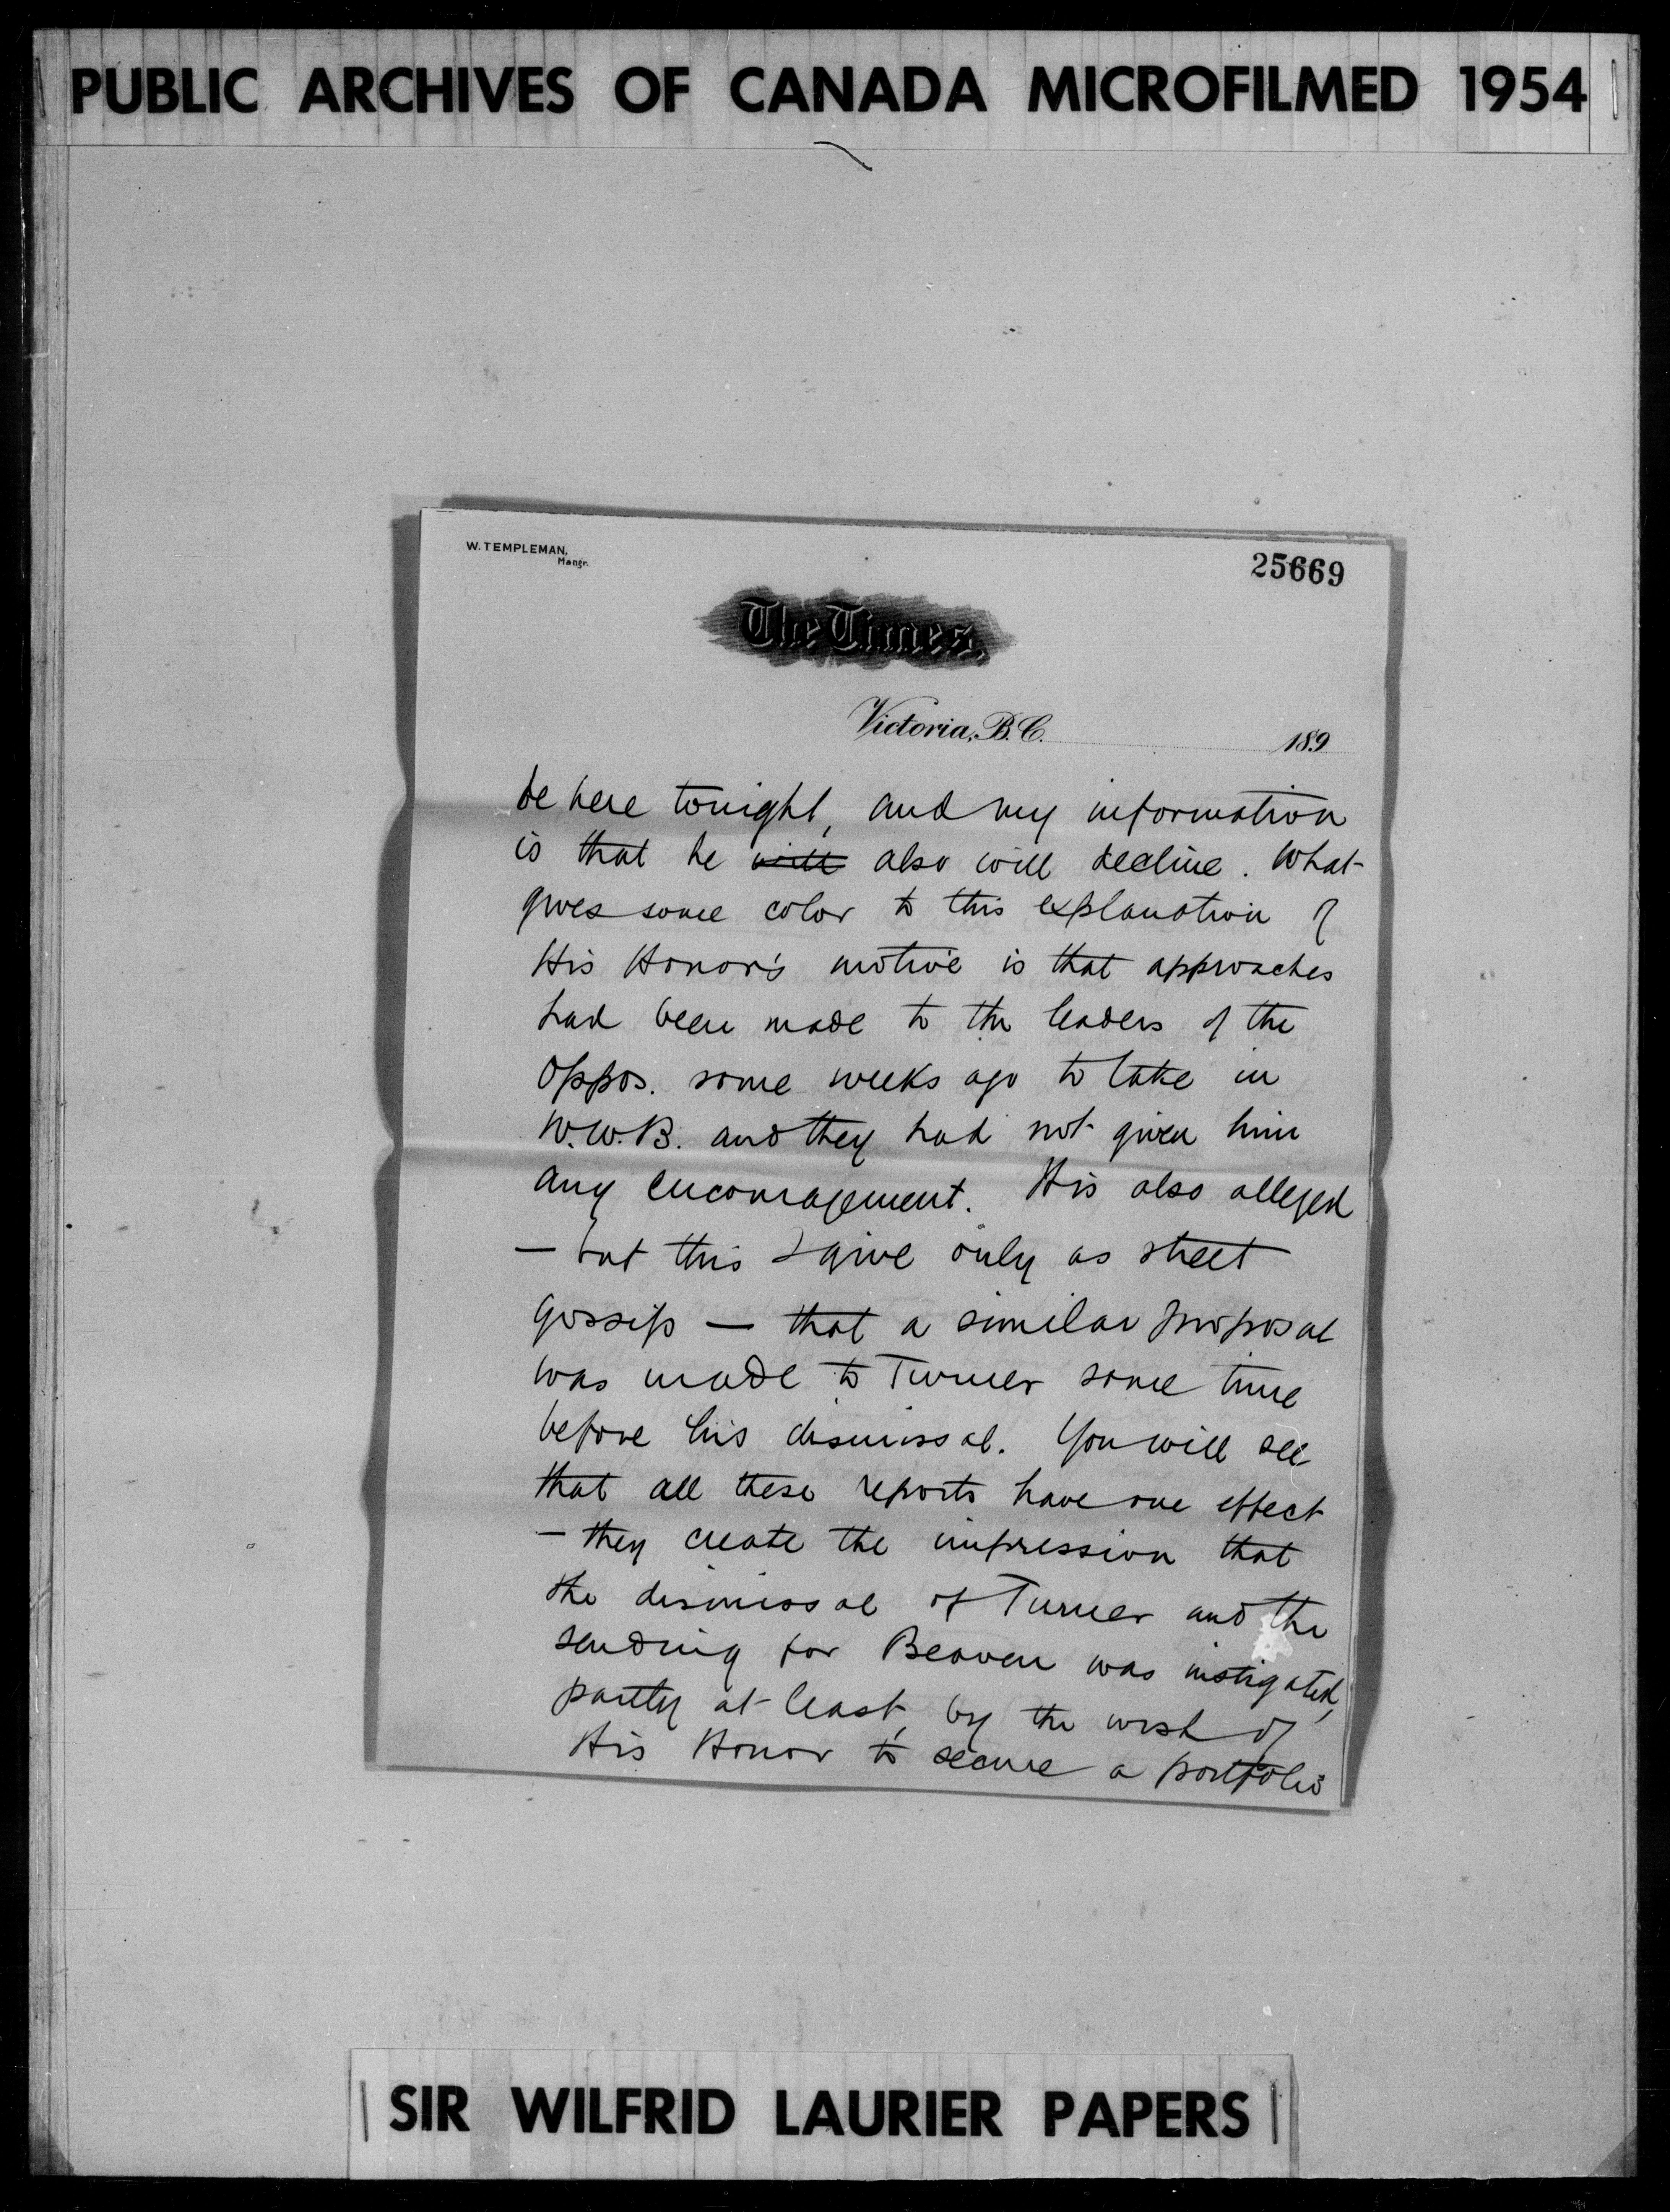 PUBLIC ARCHIVES OF CANADA MICROFILMED 1954
W. TEMPLEMAN,
Mangr.
25669
The Times,
Victoria, B.C. 189
be here tonight, and my information
is that he will also will decline. What
gives some color to this explanation of
His Honor's motive is that approaches
had been made to the leaders of the
oppos. some weeks ago to take in
W.W.B. and they had not given him
any encouragement. It is also alleged
— but this I give only as street
gossip — that a similar proposal
was made to Turner some time
before his dismissal. You will see
that all these reports have one effect
— they create the impression that
the dismissal of Turner and the
sending for Beaven was instigated,
partly at least, by the wish of
His Honor to secure a portfolio
SIR WILFRID LAURIER PAPERS